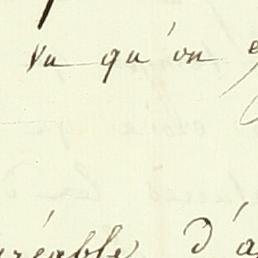 vu qu'on
éable d'a